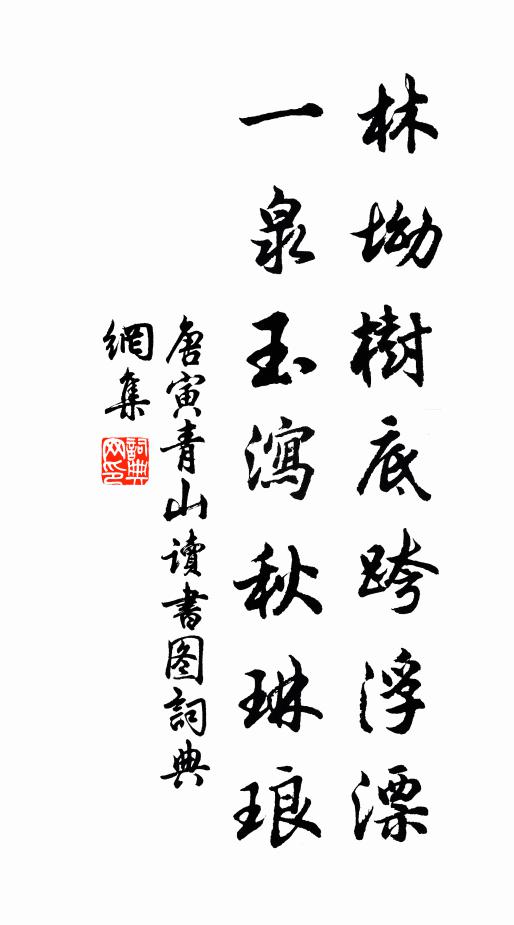 林坳樹底跨浮漂
一泉玉瀉秋琳琅
唐寅青山讀書图詞典
網集
詞典網印